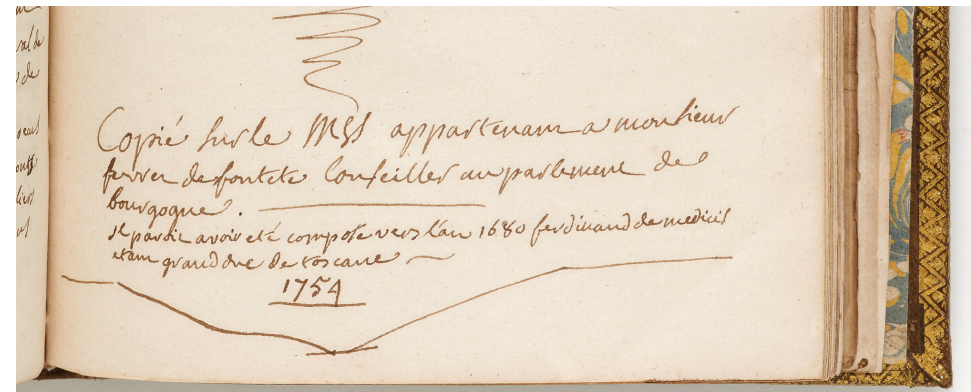 al de
de
Copié sur le MSS appartenant a monsieur
fevret de fontete Conseiller au parlement de
bourgogne.
il paroit avoir eté composé vers l'an 1680 ferdinand de medicis
etant grand duc de toscane
1754